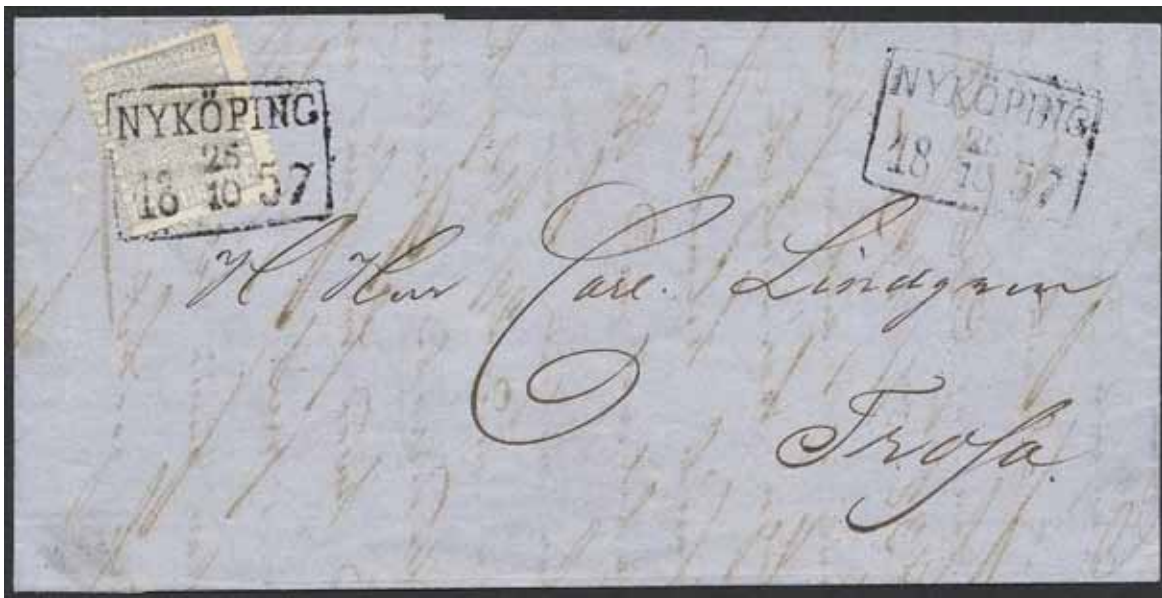 NYKÖPING
25
18 10 57
NYKÖPING
18 10 57
H. Herr Carl. Lindgren
Trosa.